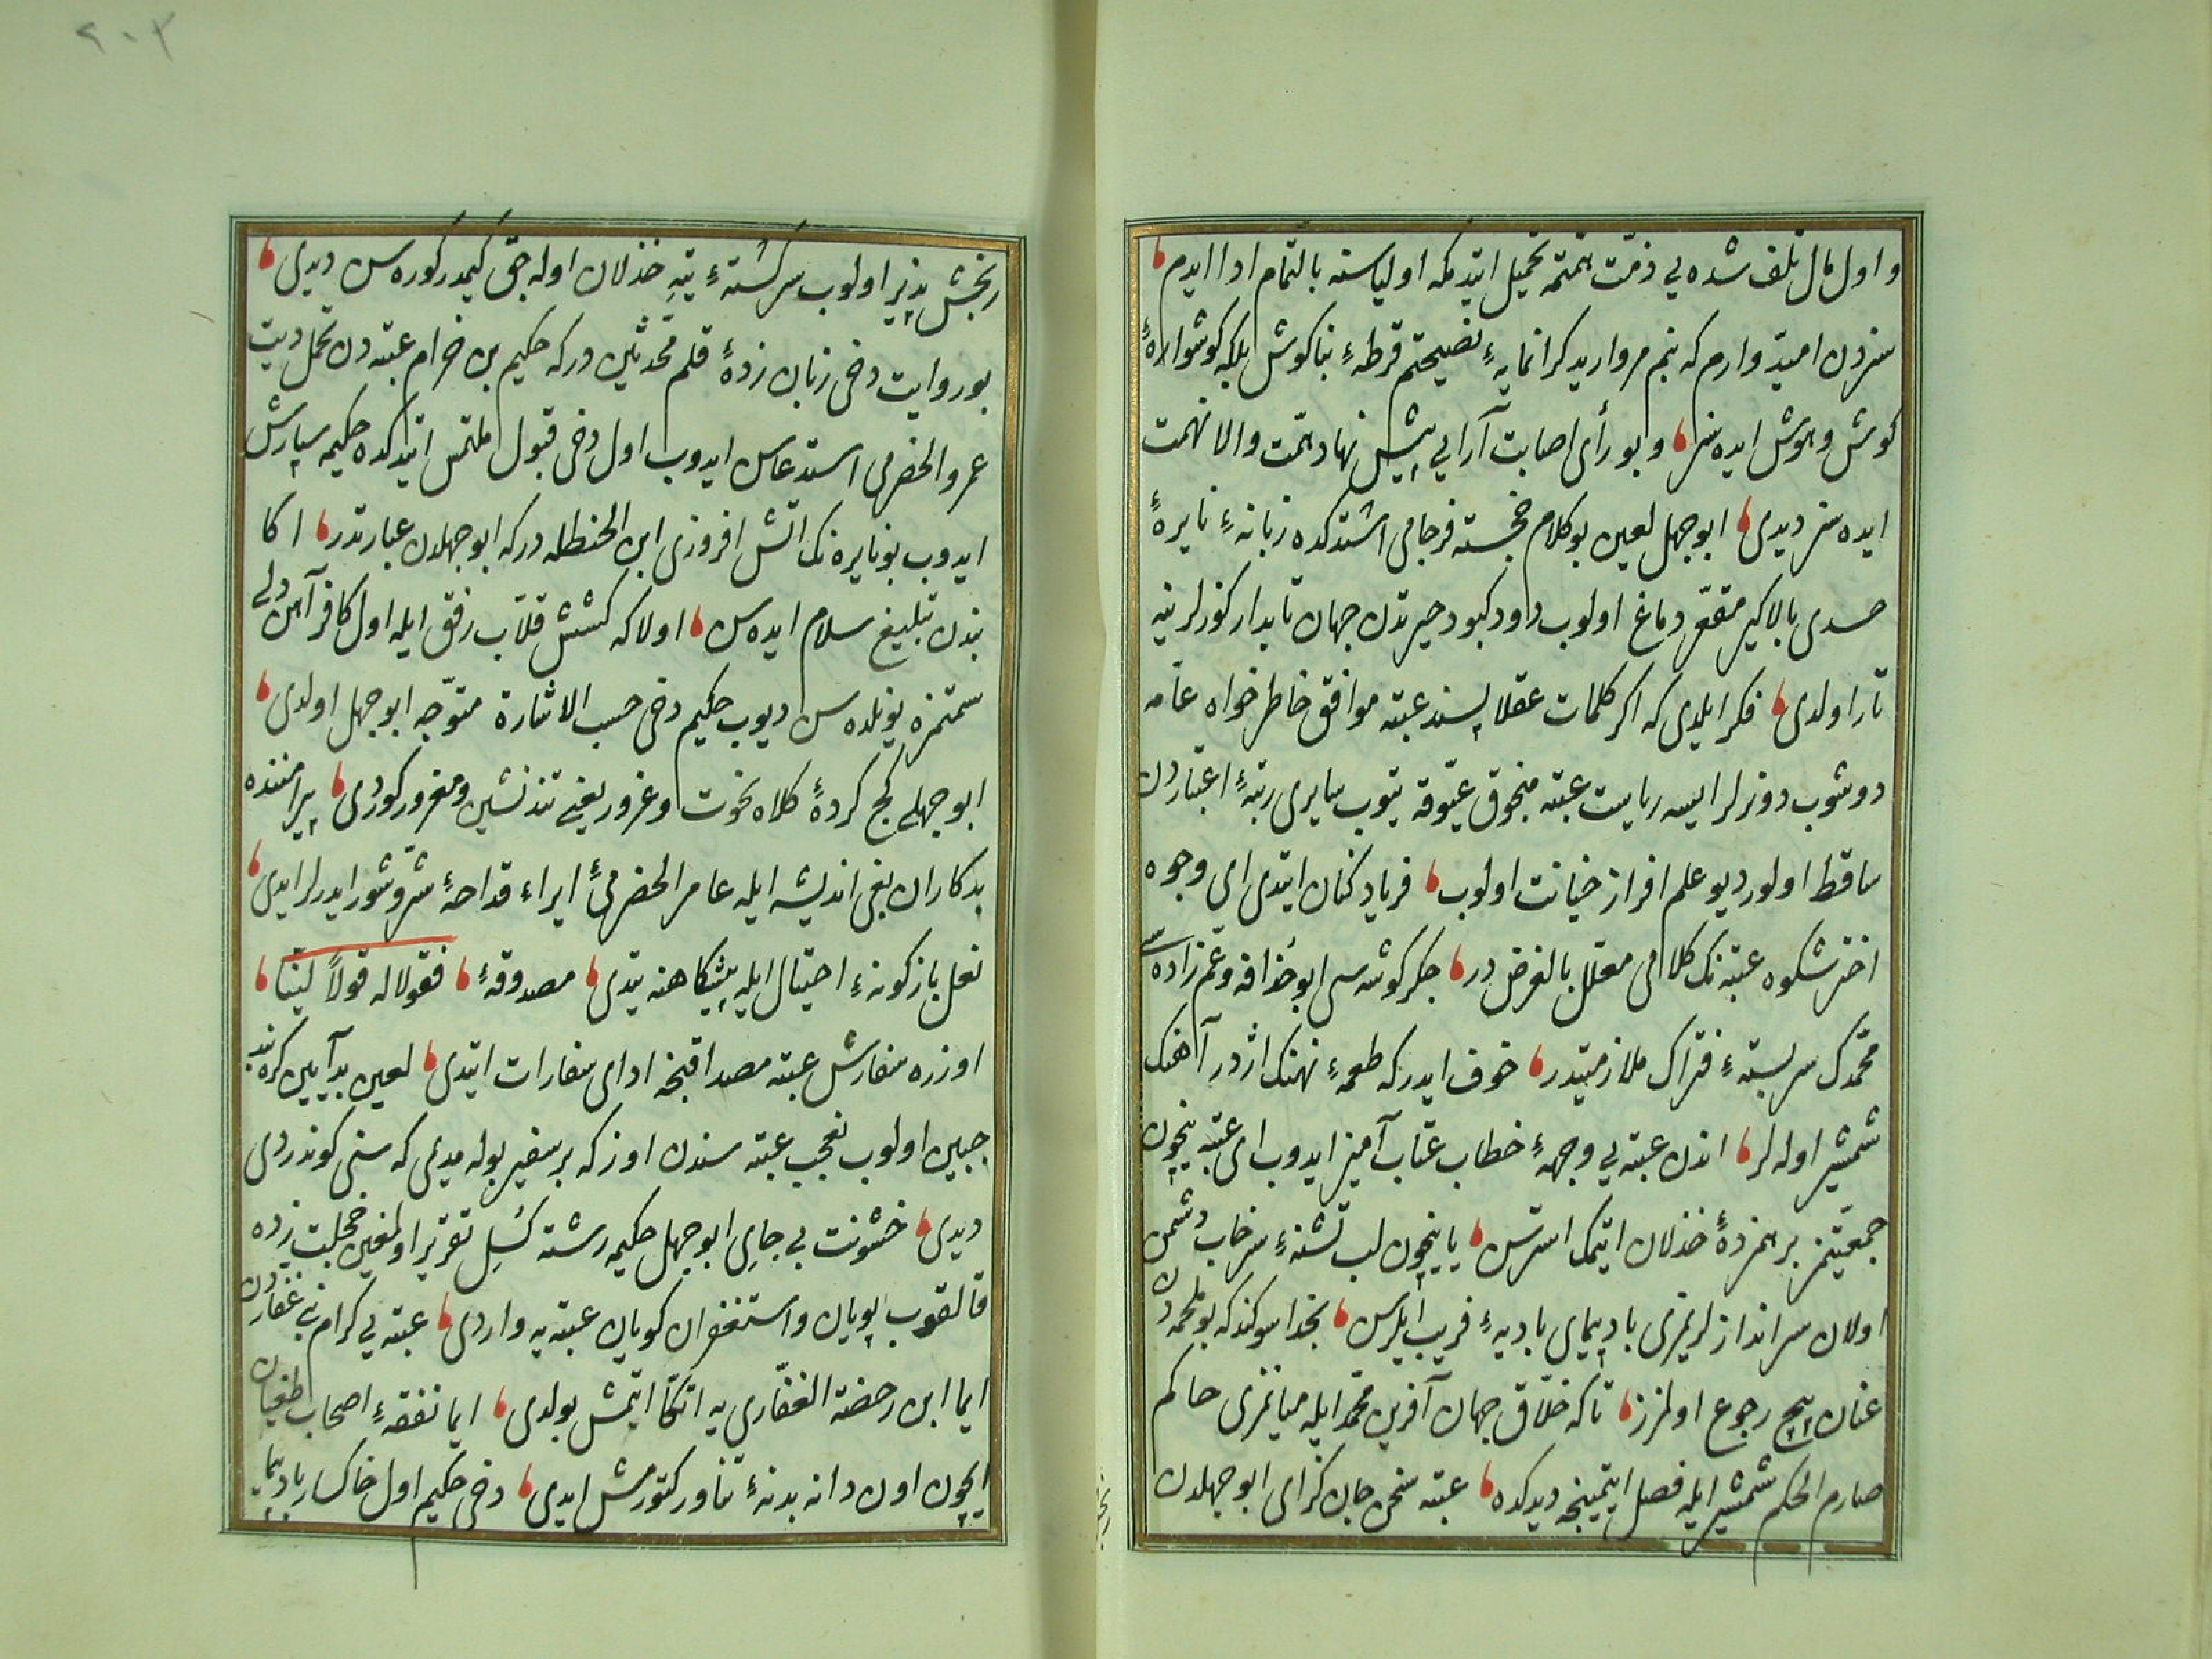 و اول مال تلف شده يی ذمّت همّتمه تحميل ايتدمكه اولياسنه بالتمام ادا ايدم
سزدن اميّد وارم كه بنم مرواريد كرانمايهٔ نصيحتم قرطهٔ بناكوش بلكه كوشوارهٔ
كوش وهوش ايده سز و بو رأی اصابت آرايی پيش نهاد همّت والا نهمت
ايده سز ديدی ابو جهل لعين بو كلام خجسته فرجامی اشتدكده زبانهٔ نايرهٔ
حسدی بالاكير مقعّر دماغ اولوب دود كبود حيرتدن جهان تابدار كوزلرينه
تار اولدی فكر ايلدی كه اكر كلمات عقلا پسند عتبه موافق خاطر خواه عامه
دوشوب دونرلر ايسه رايت عتبه منجوق عيّوقه يتوب سايری رتبهٔ اعتباردن
ساقط اولور ديو علم افراز خيانت اولوب فرياد كنان ايتدی ای وجوه
اختر شكوه عتبه نك كلامی معلّل بالغرض در جكر كوشه سی ابو حذافه و عم زاده سی
محمّدك سر بستهٔ فتراك ملازمتيدر خوف ايدر كه طعمهٔ نهنك اژدر آهنك
شمشير اوله لر اندن عتبه يی وجههٔ خطاب عتاب آميز ايدوب ای عتبه نيچون
جمعيّتمز بر همزدهٔ خذلان ايتمك استرسن يا نيچون لب تشنهٔ سرخاب دشمن
اولان سر اندازلريمزی باد پيمای باديهٔ فريب ايلرسن بخدا سوكند كه بو محمّددن
عنان پيچ رجوع اولمزز تا كه خلّاق جهان آفرين محمّد ايله ميانمزی حاكم
صارم الحكم شمشير ايله فصل ايتمينجه ديدكده عتبه سخن جان كزای ابو جهلدن
رنجش پذير اولوب سركشتهٔ تيه خذلان اوله جق كيمدر كوره سن ديدی
بو روايت دخی زبان زدهٔ قلم محدثين در كه حكيم بن خرام عتبه دن تحمل ديت
عمرو الحضرمی استدعاسن ايدوب اول دخی قبول ملتمس ايتدكده حكيمه سپارش
ايدوب بو نايره نك اتش افروزی ابن الحنظله در كه ابو جهلدن عبارتدر اكا
بندن تبليغ سلام ايده سن اولا كه كشش قلاب رفق ايله اول كافر آهن دلی
سمتمزه يوكلده سن ديوب حكيم دخی حسب الاشارة متوجّه ابو جهل اولدی
ابو جهلی كج كردهٔ كلاه نخوت و غرور يعنی تند نشين و مغرور كوردی پيرامننده
بد كاران بغی انديشه ايله عامر الحضرمیٔ ايراء قداحهٔ شرّ و شور ايدرلر ايدی
نعل باز كونهٔ احتيال ايله پيشكاهنه يتدی مصدوقهٔ فقولا له قولاً ليّنا
اوزره سفارش عتبه مصداقنجه ادای سفارات ايتدی لعين بد آيين كره بند
جبين اولوب تعجب عتبه سندن اوزكه بر سفير بوله مدی كه سنی كوندردی
ديدی خشونت بی جای ابو جهل حكيمه رشته كسل تقرير اولمغين خجلت زده
قالقوب پويان و استغفران كويان عتبه يه واردی عتبه يی كرام بنی غفاردن
ايما ابن رحضه الغفّاری يه اتكّا ايتمش بولدی ايما نفقهٔ اصحاب طغيان
ايچون اون دانه بدنهٔ تناور كتورمش ايدی دخی حكيم اول خاكسار باد پيما